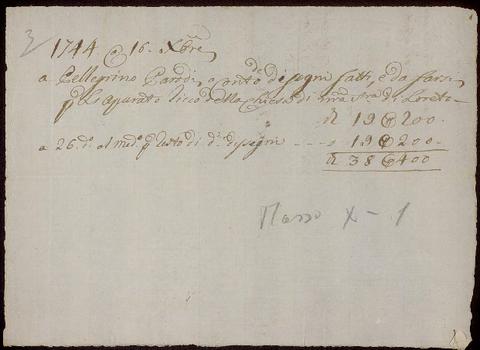 3
1744 @ 16. Xbre
a Pellegrino Parodi, a conto de disegni fatti, e da farsi
p l'aparato ricco della Chiesa di nra Sra di Loreto
R 19@200.
a 26. do. al medo. p resto di di. disegni ---- 19@200.
R 38@400
Mazzo X - 1